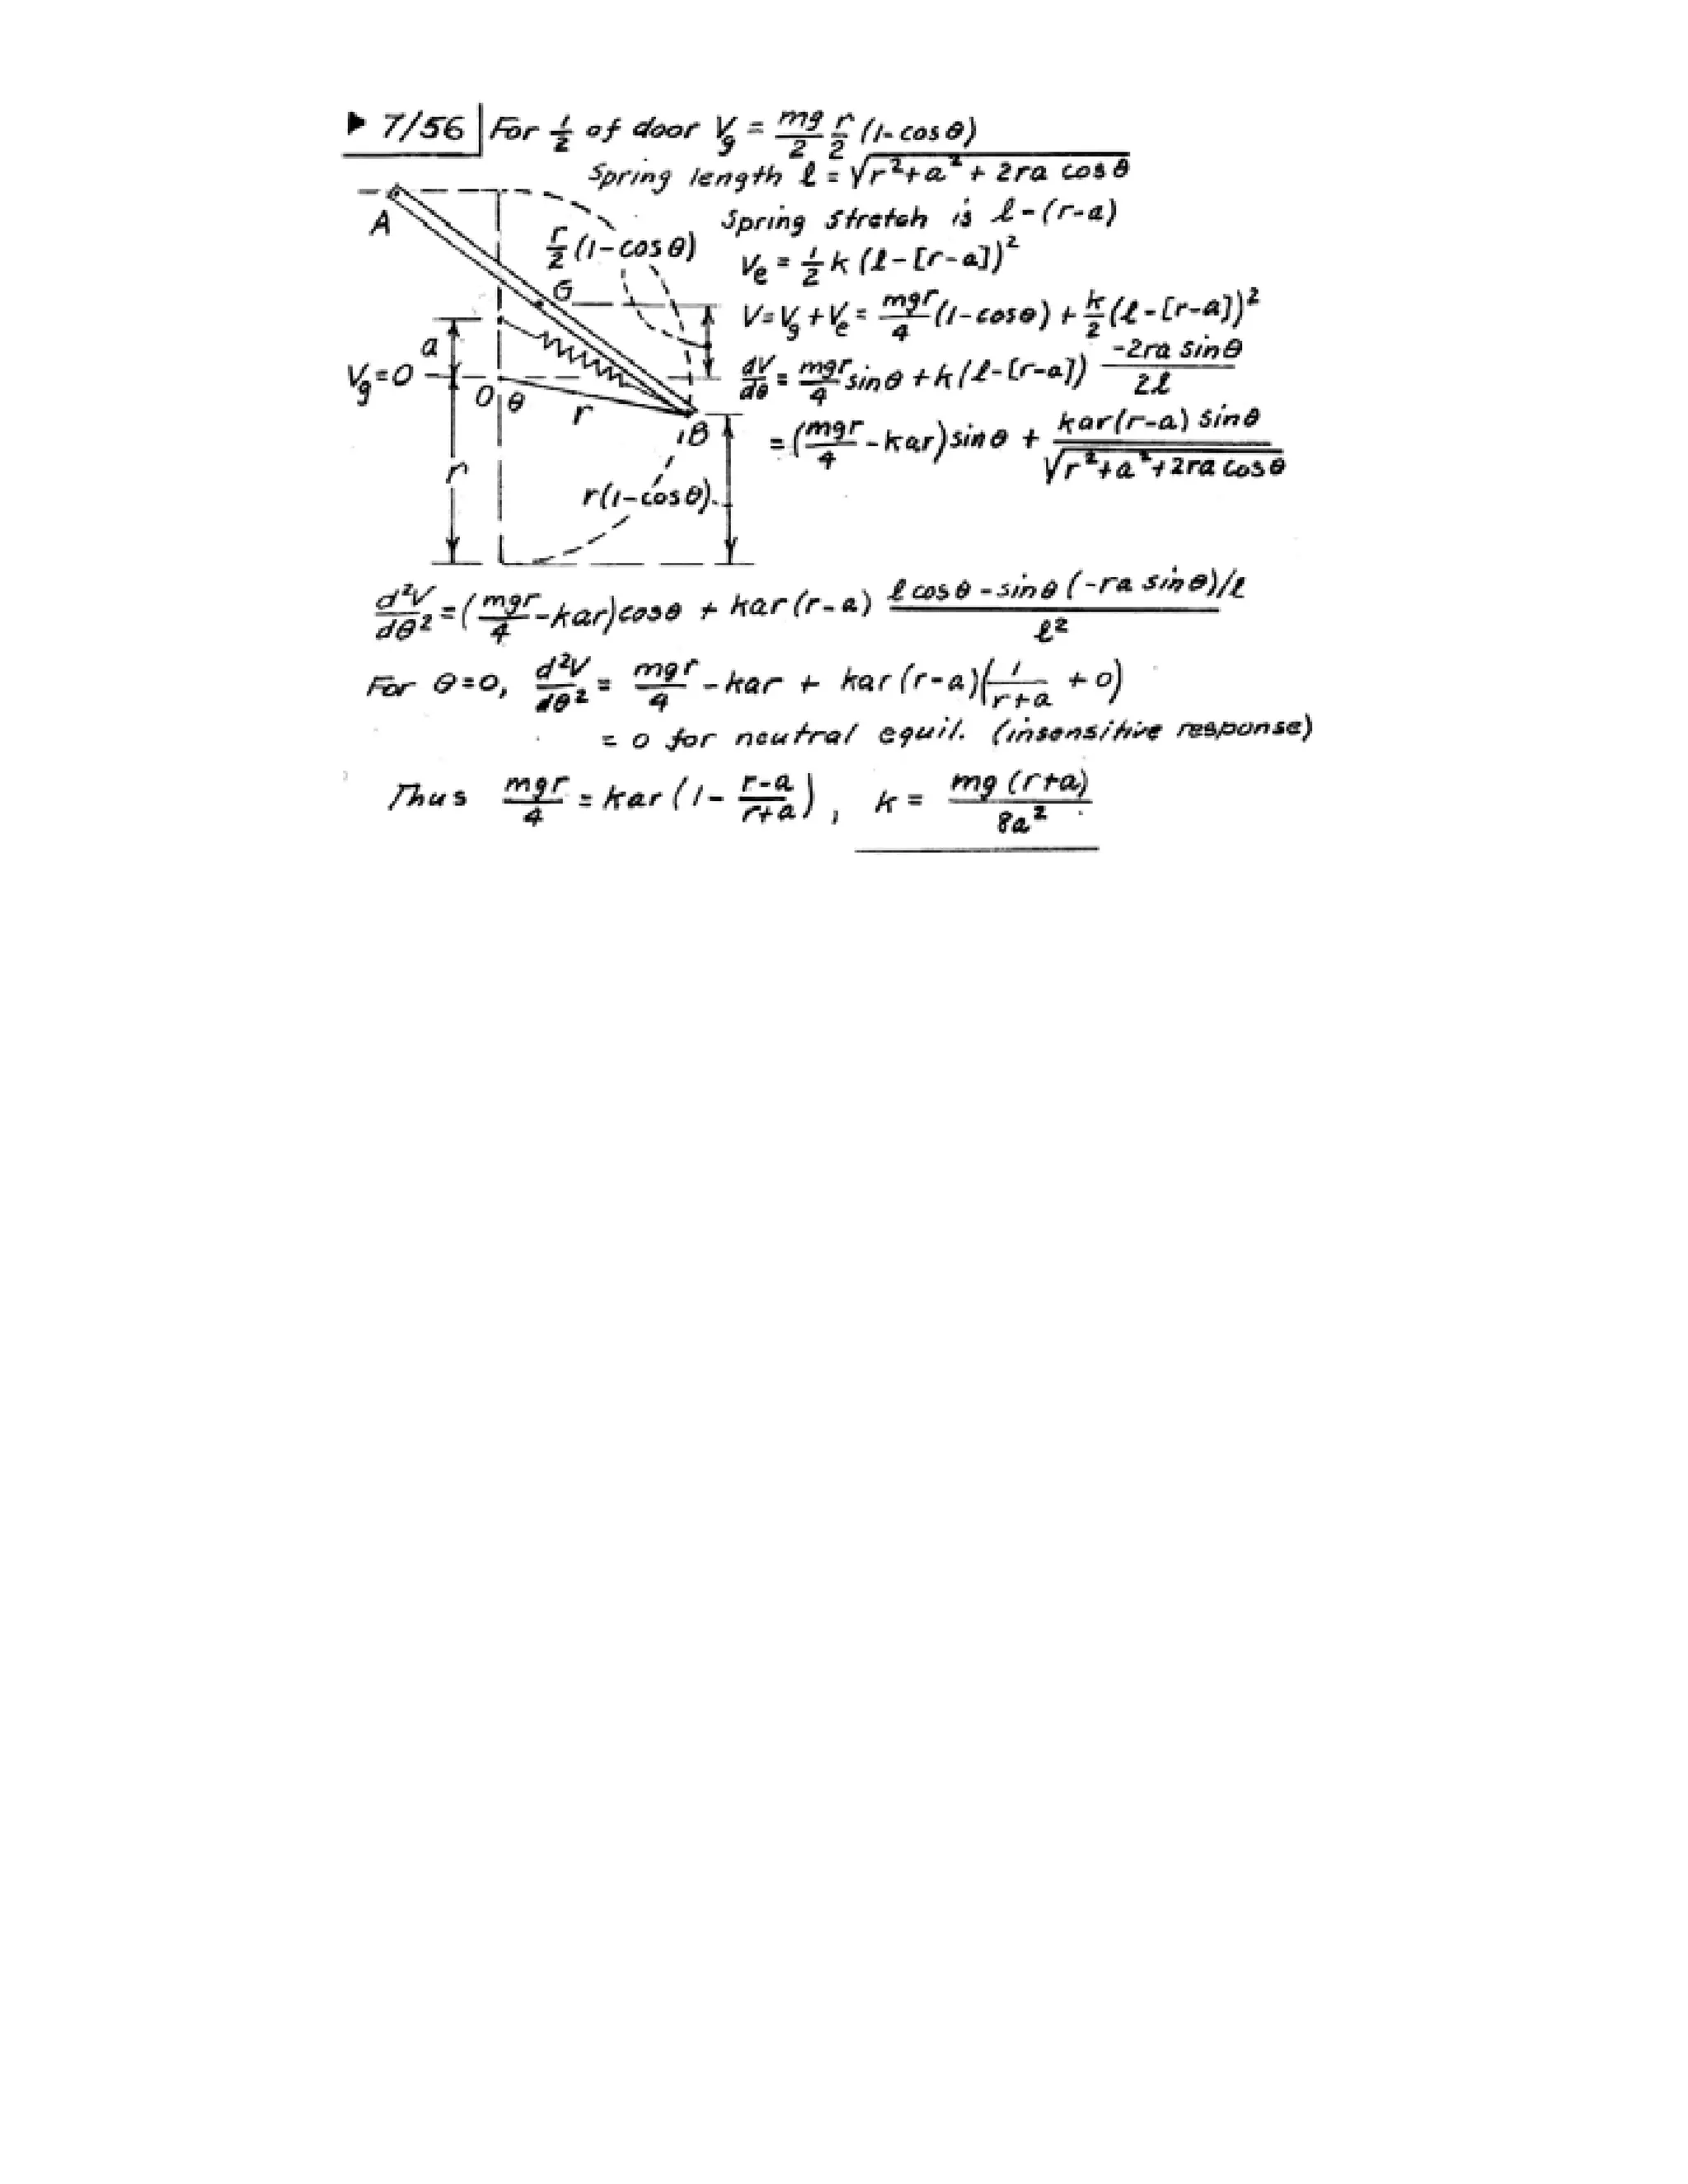 ▶ 7/56 For 1/2 of door V_g = mg/2 r/2 (1-cos θ)
Spring length ℓ = √(r²+a²+2ra cos θ)
A
r/2 (1-cos θ)
Spring stretch is ℓ-(r-a)
V_e = 1/2 k (ℓ-[r-a])²
G
V = V_g + V_e = mgr/4 (1-cos θ) + k/2 (ℓ-[r-a])²
a
V_g = 0
O θ r
dV/dθ = mgr/4 sin θ + k(ℓ-[r-a]) -2ra sin θ/2ℓ
B
= (mgr/4 - kar) sin θ + kar(r-a) sin θ/√(r²+a²+2ra cos θ)
r
r(1-cos θ)
d²V/dθ² = (mgr/4 - kar) cos θ + kar (r-a) (ℓ cos θ - sin θ (-ra sin θ)/ℓ)/ℓ²
For θ=0, d²V/dθ² = mgr/4 - kar + kar (r-a)(1/(r+a) + 0)
= 0 for neutral equil. (insensitive response)
Thus mgr/4 = kar (1 - (r-a)/(r+a)), k = mg (r+a)/8a²